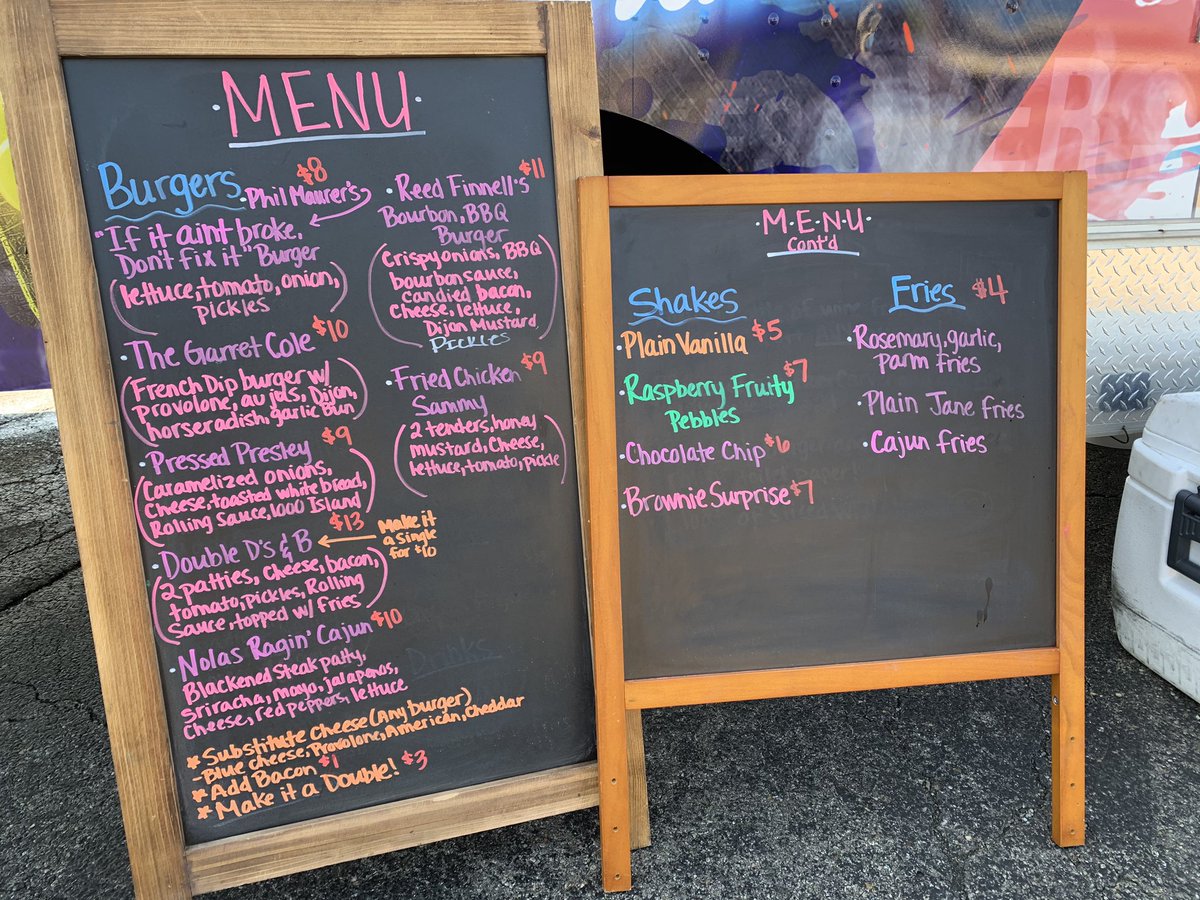 MENU
Burgers
$8
Phil Maurer's
"If it aint broke,
Don't fix it" Burger
(lettuce, tomato, onion,
pickles)
The Garret Cole $10
(French Dip burger w/
provolone, au jus, Dijon,
horseradish, garlic bun)
Pressed Presley $9
(Caramelized onions,
Cheese, toasted white bread,
Rolling Sauce, 1000 Island)
$13
Double D's & B
Make it
a Single
for $10
(2 patties, Cheese, bacon,
tomato, pickles, Rolling
Sauce, topped w/ fries)
Nolas Ragin' Cajun $10
Blackened Steak patty,
Sriracha, mayo, jalapenos,
Cheese, red peppers, lettuce
* Substitute Cheese (Any burger)
- Blue cheese, Provolone, American, Cheddar
* Add Bacon $1
* Make it a Double! $3
Reed Finnell's $11
Bourbon, BBQ
Burger
(Crispy onions, BBQ
bourbon sauce,
candied bacon,
Cheese, lettuce,
Dijon Mustard
Pickles)
Fried Chicken $9
Sammy
(2 tenders, honey
mustard, Cheese,
lettuce, tomato, pickle)
Drinks
M·E·N·U
Cont'd
Shakes
Plain Vanilla $5
Raspberry Fruity $7
Pebbles
Chocolate Chip $6
Brownie Surprise $7
Fries $4
Rosemary, garlic,
parm fries
Plain Jane fries
Cajun fries